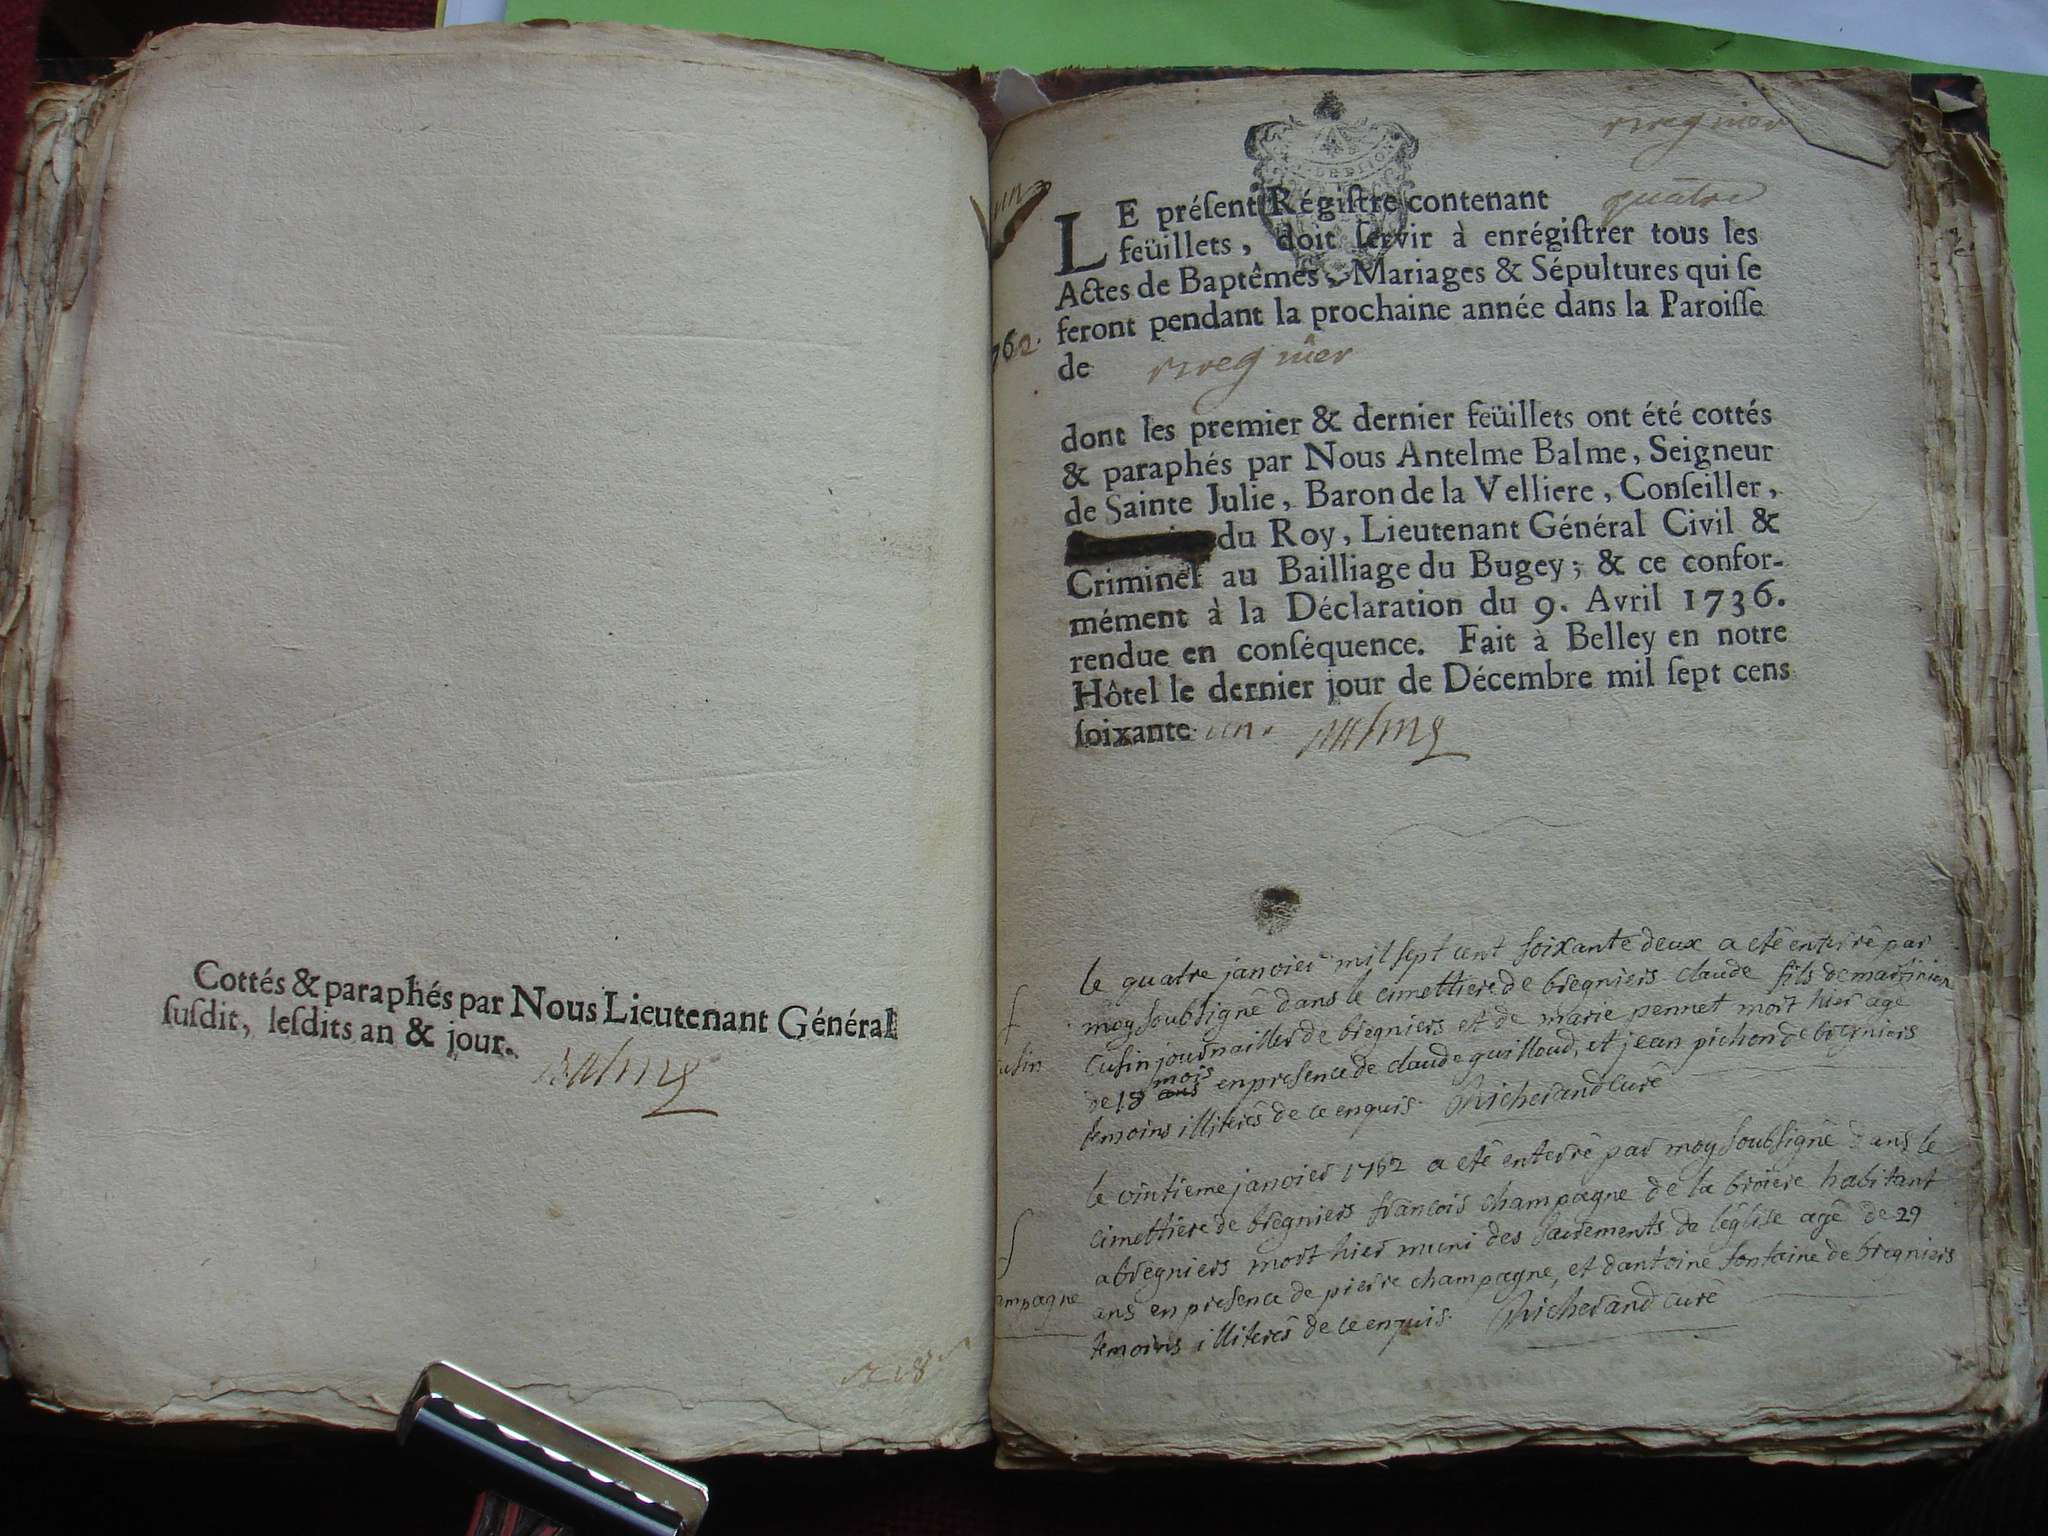 Cottés & paraphés par Nous Lieutenant Général
ſuſdit, leſdits an & jour.
Balme
un
1762.
quatre
LE préſent Régiſtre contenant
feüillets, doit ſervir à enrégiſtrer tous les
Actes de Baptêmes, Mariages & Sépultures qui ſe
feront pendant la prochaine année dans la Paroiſſe
de
dont les premier & dernier feüillets ont été cottés
& paraphés par Nous Antelme Balme, Seigneur
de Sainte Julie, Baron de la Velliere, Conſeiller,
du Roy, Lieutenant Général Civil &
Criminel au Bailliage du Bugey; & ce confor-
mément à la Déclaration du 9. Avril 1736.
rendue en conſéquence. Fait à Belley en notre
Hôtel le dernier jour de Décembre mil ſept cens
ſoixante un. Balme
le quatre janvier mil sept cent soixante deux a eté enterré par
moy soubsigné dans le cimettiere de bregniers claude fils de martinien
cusin journaillier de bregniers et de marie pennet mort hier agé
de 18 mois ans en presence de claude guilloud, et jean pichon de bregniers
temoins illiterés de ce enquis. Richerand curé
cusin
le vintieme janvier 1762 a eté enterré par moy soubsigné dans le
cimettiere de bregniers francois champagne de la broiere habitant
a bregniers mort hier muni des sacrements de leglise agé de 29
ans en presence de pierre champagne, et dantoine fontaine de bregniers
temoins illiterés de ce enquis. Richerand curé
ampagne